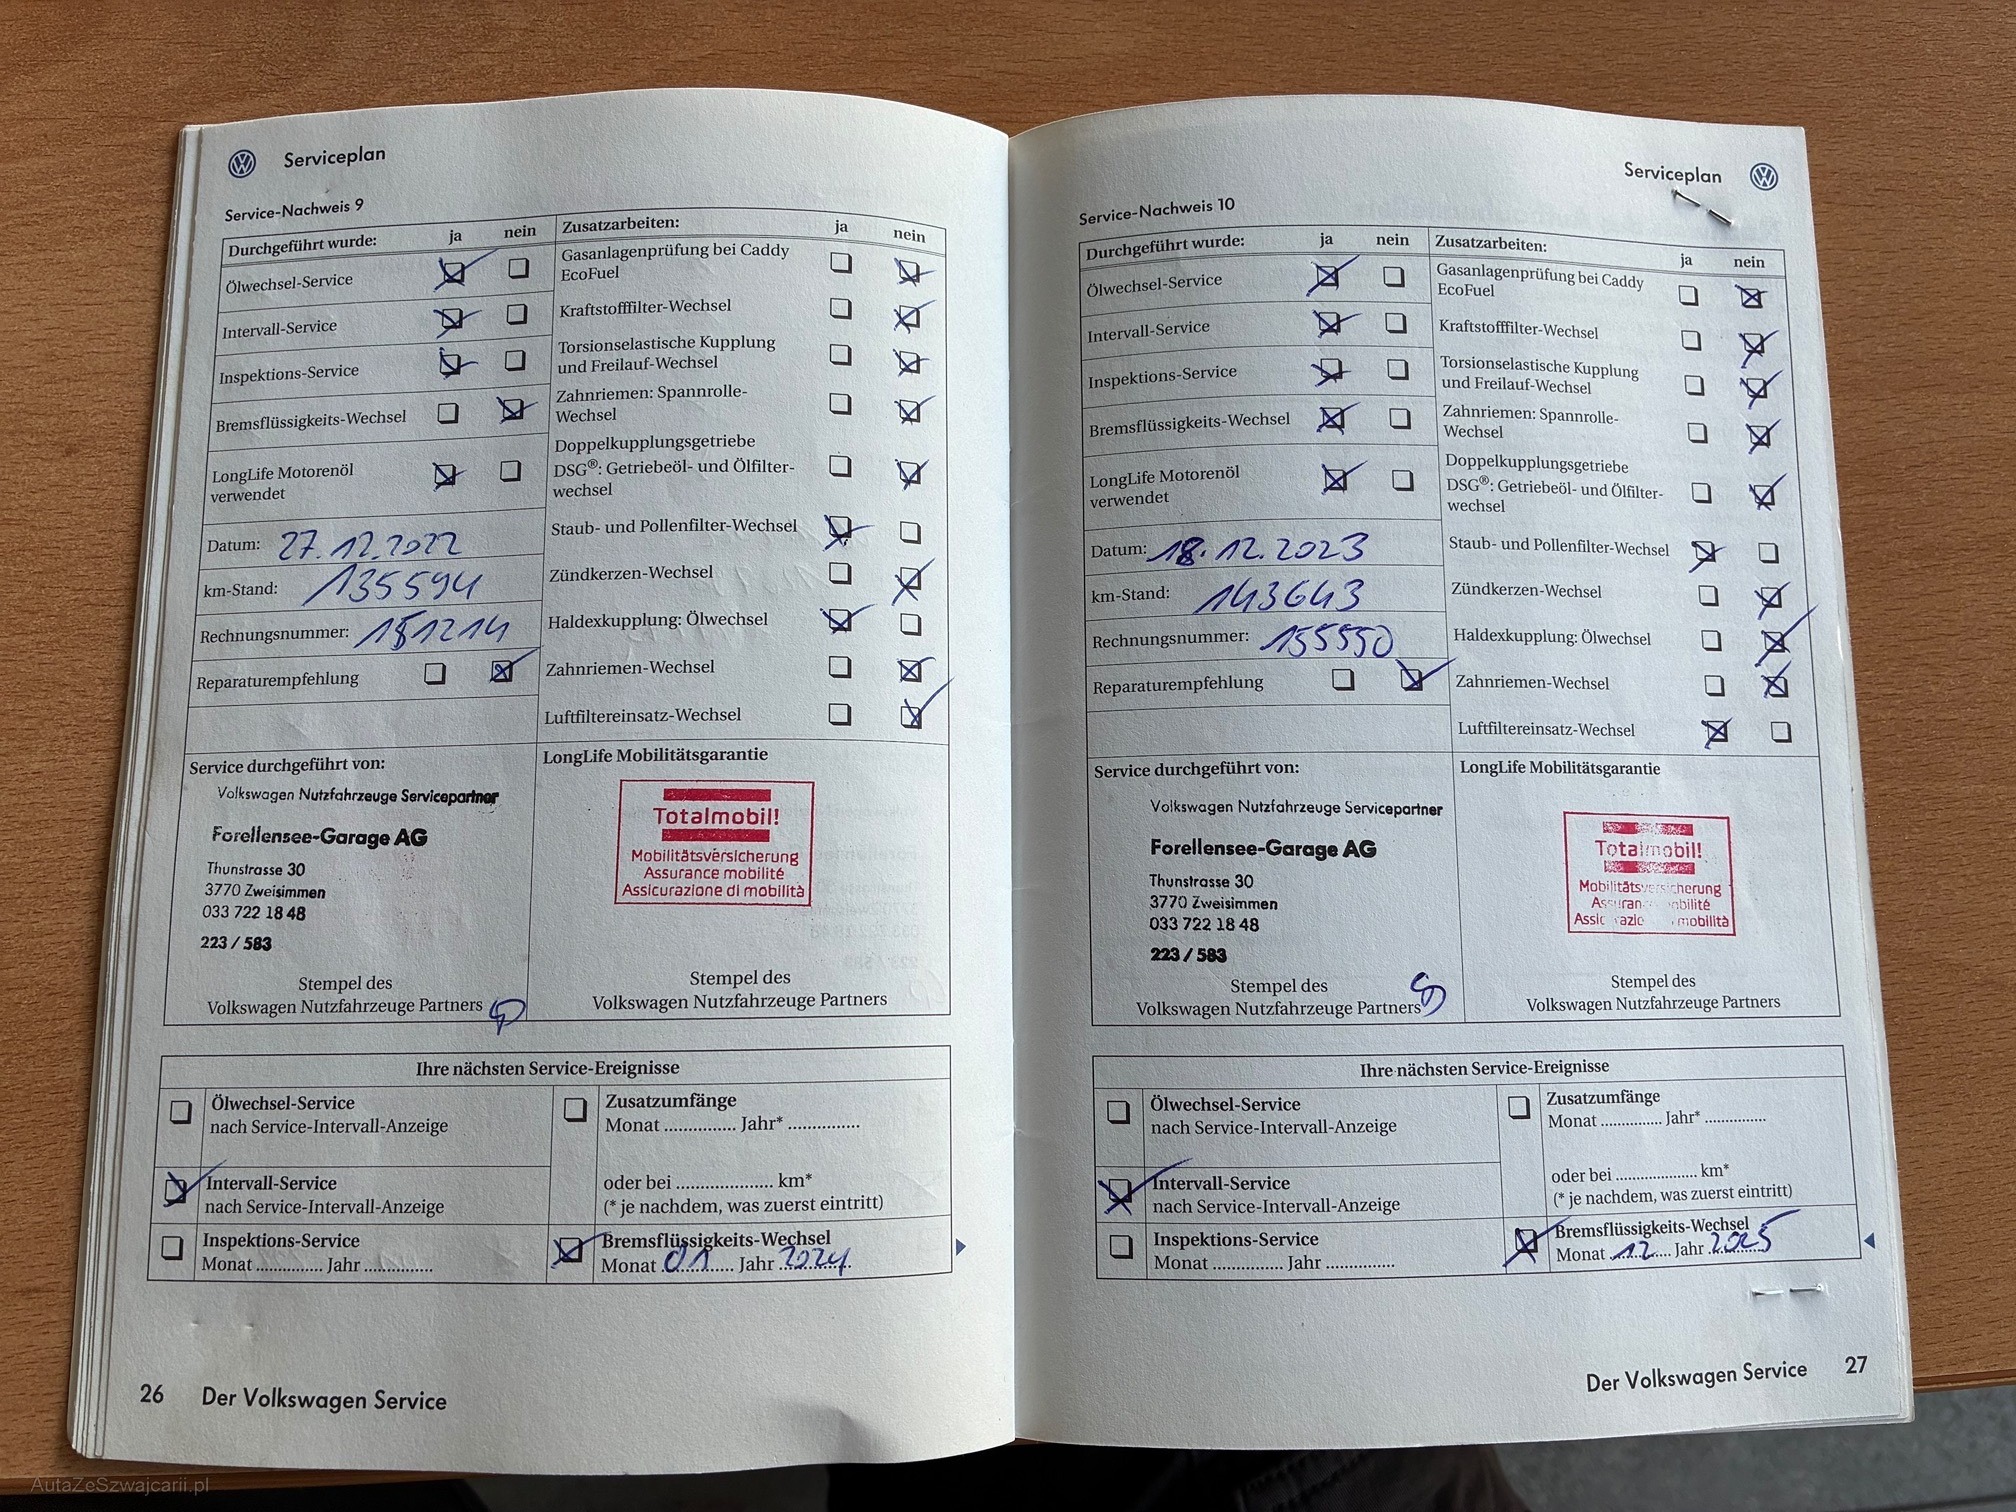 Serviceplan
Service-Nachweis 9
Durchgeführt wurde: ja nein
Ölwechsel-Service
Intervall-Service
Inspektions-Service
Bremsflüssigkeits-Wechsel
LongLife Motorenöl
verwendet
Datum: 27.12.2022
km-Stand: 135594
Rechnungsnummer: 151214
Reparaturempfehlung
Zusatzarbeiten: ja nein
Gasanlagenprüfung bei Caddy
EcoFuel
Kraftstofffilter-Wechsel
Torsionselastische Kupplung
und Freilauf-Wechsel
Zahnriemen: Spannrolle-
Wechsel
Doppelkupplungsgetriebe
DSG®: Getriebeöl- und Ölfilter-
wechsel
Staub- und Pollenfilter-Wechsel
Zündkerzen-Wechsel
Haldexkupplung: Ölwechsel
Zahnriemen-Wechsel
Luftfiltereinsatz-Wechsel
Service durchgeführt von:
Volkswagen Nutzfahrzeuge Servicepartner
Forellensee-Garage AG
Thunstrasse 30
3770 Zweisimmen
033 722 18 48
223 / 583
Stempel des
Volkswagen Nutzfahrzeuge Partners
LongLife Mobilitätsgarantie
Totalmobil!
Mobilitätsversicherung
Assurance mobilité
Assicurazione di mobilità
Stempel des
Volkswagen Nutzfahrzeuge Partners
Ihre nächsten Service-Ereignisse
Ölwechsel-Service
nach Service-Intervall-Anzeige
Intervall-Service
nach Service-Intervall-Anzeige
Inspektions-Service
Monat .............. Jahr ..............
Zusatzumfänge
Monat ............... Jahr* ...............
oder bei .................... km*
(* je nachdem, was zuerst eintritt)
Bremsflüssigkeits-Wechsel
Monat 01 Jahr 2024
26 Der Volkswagen Service
Serviceplan
Service-Nachweis 10
Durchgeführt wurde: ja nein
Ölwechsel-Service
Intervall-Service
Inspektions-Service
Bremsflüssigkeits-Wechsel
LongLife Motorenöl
verwendet
Datum: 18.12.2023
km-Stand: 143643
Rechnungsnummer: 155550
Reparaturempfehlung
Zusatzarbeiten: ja nein
Gasanlagenprüfung bei Caddy
EcoFuel
Kraftstofffilter-Wechsel
Torsionselastische Kupplung
und Freilauf-Wechsel
Zahnriemen: Spannrolle-
Wechsel
Doppelkupplungsgetriebe
DSG®: Getriebeöl- und Ölfilter-
wechsel
Staub- und Pollenfilter-Wechsel
Zündkerzen-Wechsel
Haldexkupplung: Ölwechsel
Zahnriemen-Wechsel
Luftfiltereinsatz-Wechsel
Service durchgeführt von:
Volkswagen Nutzfahrzeuge Servicepartner
Forellensee-Garage AG
Thunstrasse 30
3770 Zweisimmen
033 722 18 48
223 / 583
Stempel des
Volkswagen Nutzfahrzeuge Partners
LongLife Mobilitätsgarantie
Totalmobil!
Mobilitätsversicherung
Assurance mobilité
Assicurazione di mobilità
Stempel des
Volkswagen Nutzfahrzeuge Partners
Ihre nächsten Service-Ereignisse
Ölwechsel-Service
nach Service-Intervall-Anzeige
Intervall-Service
nach Service-Intervall-Anzeige
Inspektions-Service
Monat ............... Jahr ...............
Zusatzumfänge
Monat ............. Jahr* .............
oder bei ................. km*
(* je nachdem, was zuerst eintritt)
Bremsflüssigkeits-Wechsel
Monat 12 Jahr 2025
Der Volkswagen Service 27
AutaZeSzwajcarii.pl